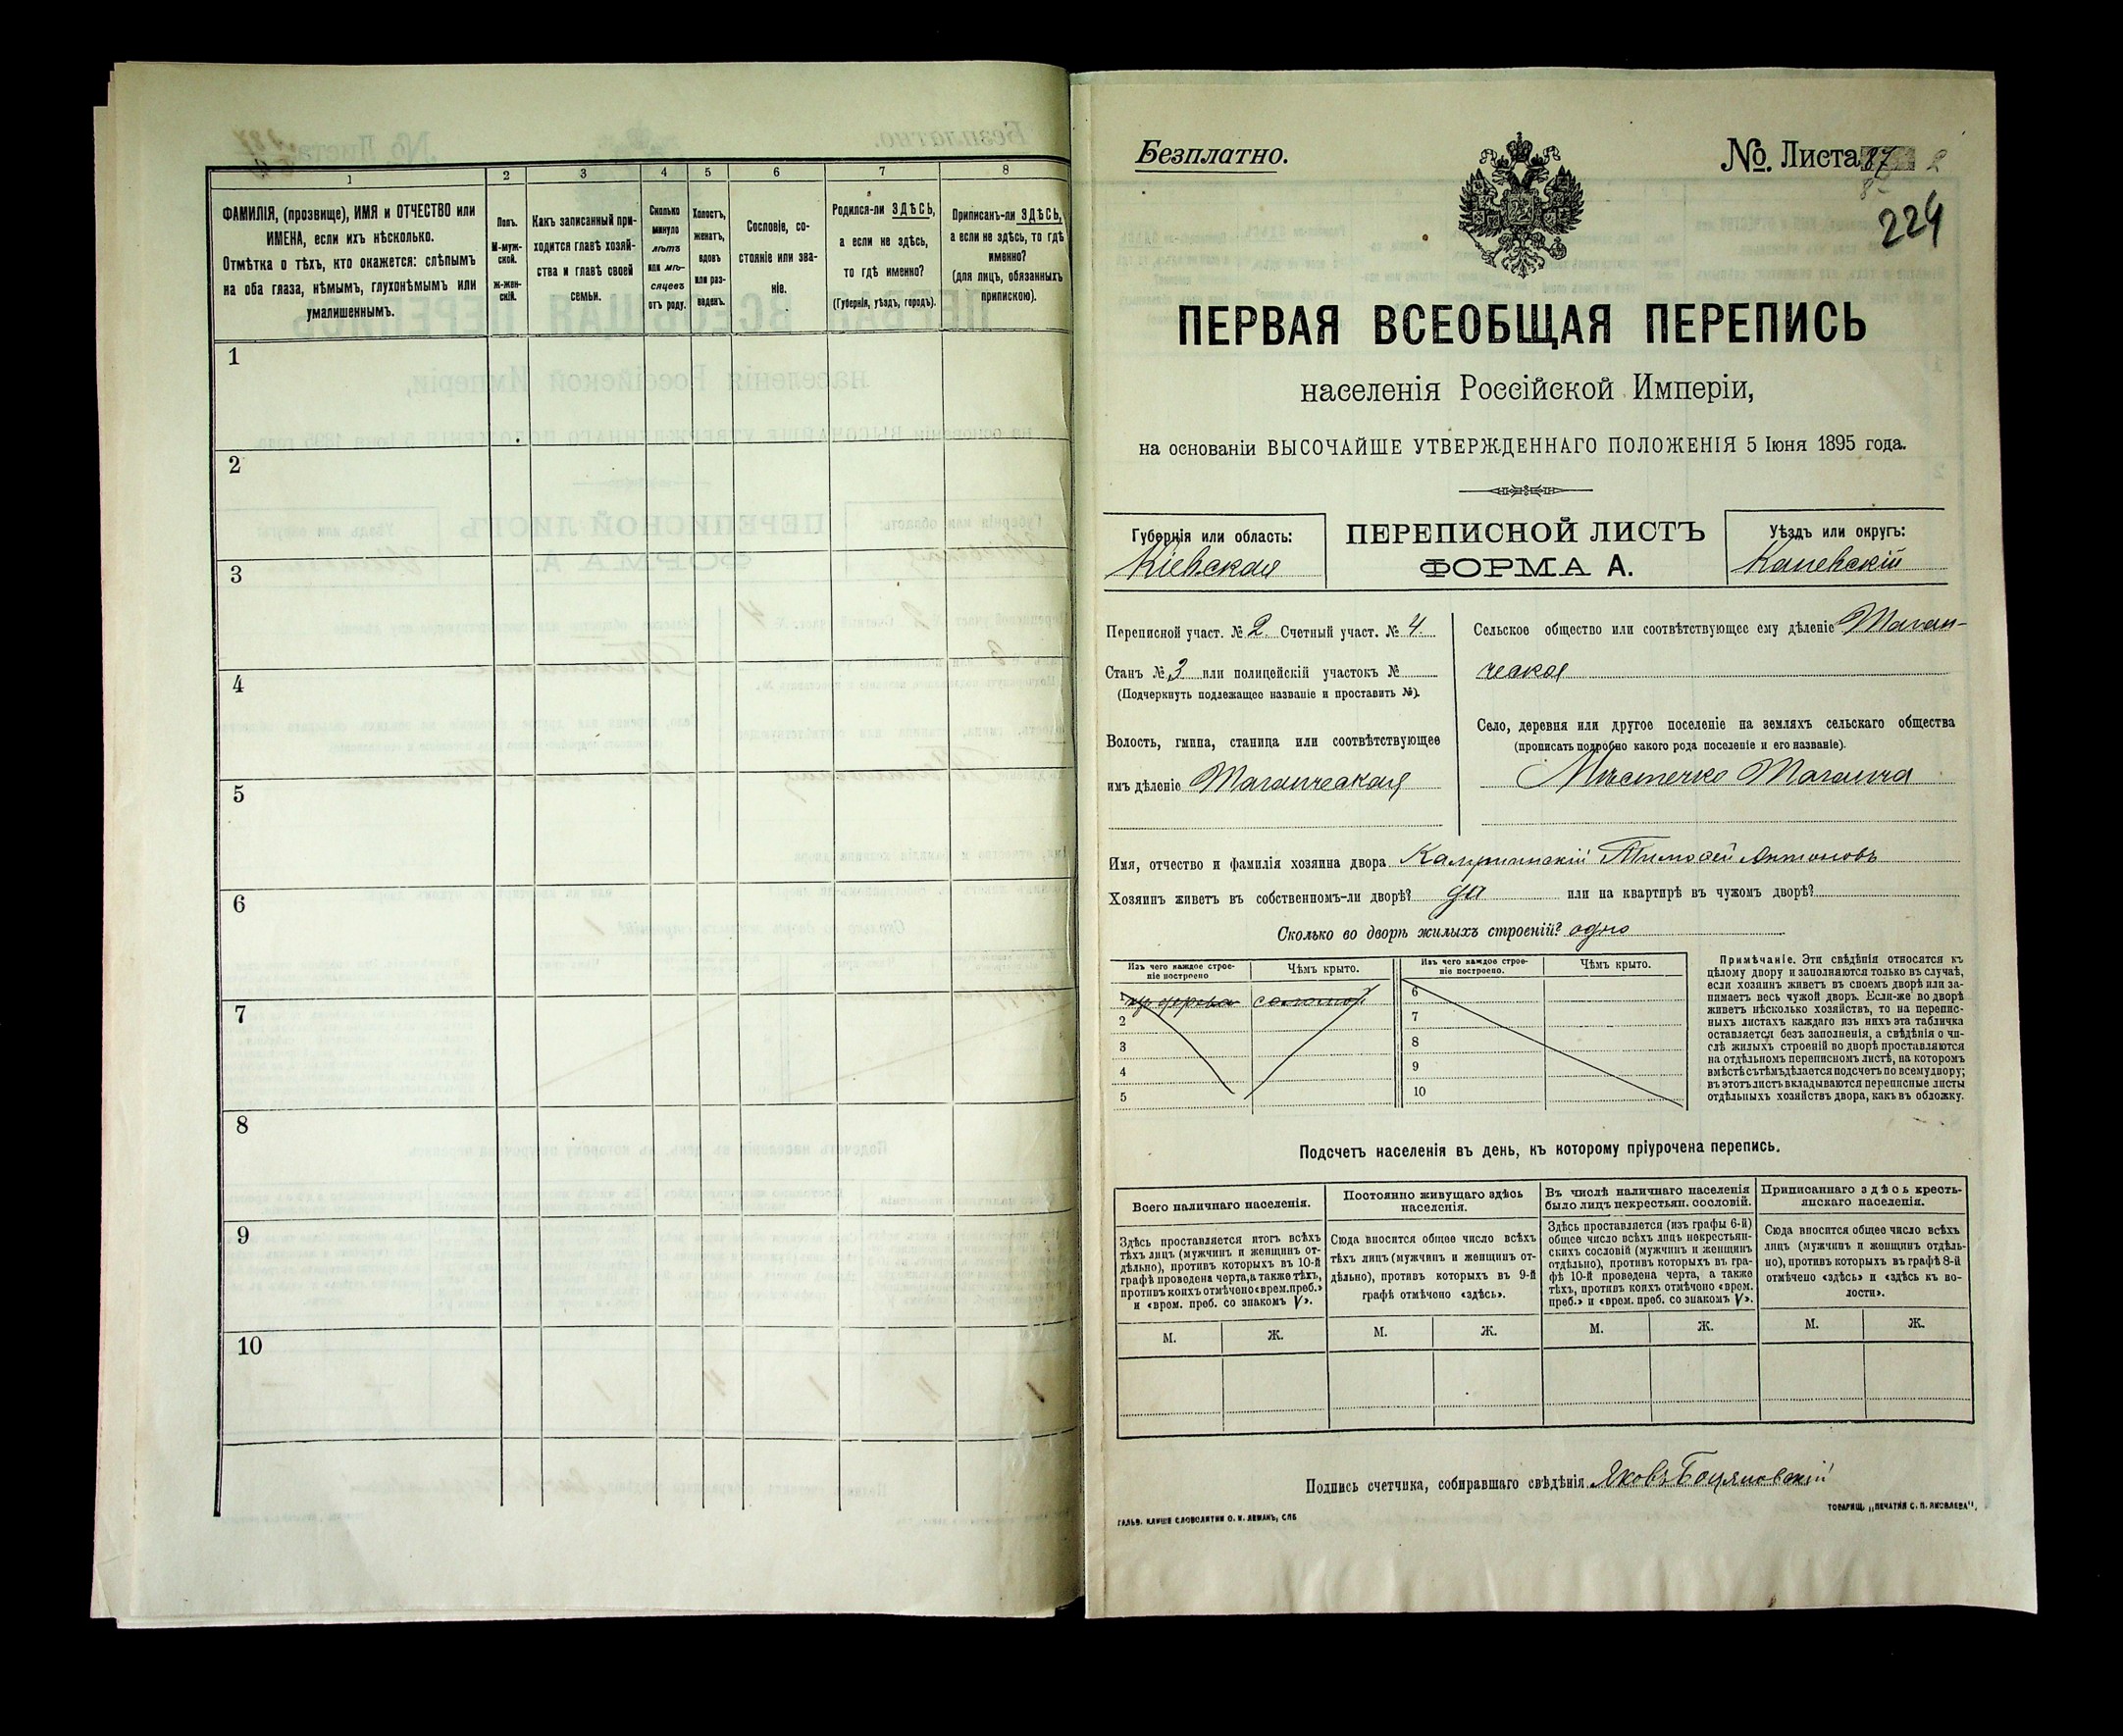 1 2 3 4 5 6 7 8
ФАМИЛІЯ, (прозвище), ИМЯ и ОТЧЕСТВО или
ИМЕНА, если ихъ нѣсколько.
Отмѣтка о тѣхъ, кто окажется: слѣпымъ
на оба глаза, нѣмымъ, глухонѣмымъ или
умалишеннымъ.
Полъ.
М-муж-
ской.
Ж-жен-
скій.
Какъ записанный при-
ходится главѣ хозяй-
ства и главѣ своей
семьи.
Сколько
минуло
лѣтъ
или мѣ-
сяцевъ
отъ роду.
Холостъ,
женатъ,
вдовъ
или раз-
веденъ.
Сословіе, со-
стояніе или зва-
ніе.
Родился-ли ЗДѢСЬ,
а если не здѣсь,
то гдѣ именно?
(Губернія, уѣздъ, городъ).
Приписанъ-ли ЗДѢСЬ,
а если не здѣсь, то гдѣ
именно?
(для лицъ, обязанныхъ
припискою).
1
2
3
4
5
6
7
8
9
10
Безплатно.
№. Листа 87
224
ПЕРВАЯ ВСЕОБЩАЯ ПЕРЕПИСЬ
населенія Россійской Имперіи,
на основаніи ВЫСОЧАЙШЕ УТВЕРЖДЕННАГО ПОЛОЖЕНІЯ 5 Іюня 1895 года.
Губернія или область:
Кіевская
ПЕРЕПИСНОЙ ЛИСТЪ
ФОРМА А.
Уѣздъ или округъ:
Каневскій
Переписной участ. № 2. Счетный участ. № 4.
Станъ № 3 или полицейскій участокъ №
(Подчеркнуть подлежащее названіе и проставить №).
Волость, гмина, станица или соотвѣтствующее
имъ дѣленіе Таганческая
Сельское общество или соотвѣтствующее ему дѣленіе Таган-
ческое
Село, деревня или другое поселеніе на земляхъ сельскаго общества
(прописать подробно какого рода поселеніе и его названіе).
Мѣстечко Таганча
Имя, отчество и фамилія хозяина двора Тимофей Антоновъ
Хозяинъ живетъ въ собственномъ-ли дворѣ? да или на квартирѣ въ чужомъ дворѣ?
Сколько во дворѣ жилыхъ строеній? одно
Изъ чего каждое строе-
ніе построено
Чѣмъ крыто.
Изъ чего каждое строе-
ніе построено.
Чѣмъ крыто.
1 изъ дерева соломой
2
3
4
5
6
7
8
9
10
Примѣчаніе. Эти свѣдѣнія относятся къ
цѣлому двору и заполняются только въ случаѣ,
если хозяинъ живетъ въ своемъ дворѣ или за-
нимаетъ весь чужой дворъ. Если-же во дворѣ
живетъ нѣсколько хозяйствъ, то на перепис-
ныхъ листахъ каждаго изъ нихъ эта табличка
оставляется безъ заполненія, а свѣдѣнія о чи-
слѣ жилыхъ строеній во дворѣ проставляются
на отдѣльномъ переписномъ листѣ, на которомъ
вмѣстѣ съ тѣмъ дѣлается подсчетъ по всему двору;
въ этотъ листъ вкладываются переписные листы
отдѣльныхъ хозяйствъ двора, какъ въ обложку.
Подсчетъ населенія въ день, къ которому пріурочена перепись.
Всего наличнаго населенія.
Здѣсь проставляется итогъ всѣхъ
тѣхъ лицъ (мужчинъ и женщинъ от-
дѣльно), противъ которыхъ въ 10-й
графѣ проведена черта, а также тѣхъ,
противъ коихъ отмѣчено «врем. преб.»
и «врем. преб. со знакомъ V».
М. Ж.
Постоянно живущаго здѣсь
населенія.
Сюда вносится общее число всѣхъ
тѣхъ лицъ (мужчинъ и женщинъ от-
дѣльно), противъ которыхъ въ 9-й
графѣ отмѣчено «здѣсь».
М. Ж.
Въ числѣ наличнаго населенія
было лицъ некрестьян. сословій.
Здѣсь проставляется (изъ графы 6-й)
общее число всѣхъ лицъ некрестьян-
скихъ сословій (мужчинъ и женщинъ
отдѣльно), противъ которыхъ въ гра-
фѣ 10-й проведена черта, а также
тѣхъ, противъ коихъ отмѣчено «врем.
преб.» и «врем. преб. со знакомъ V».
М. Ж.
Приписаннаго здѣсь кресть-
янскаго населенія.
Сюда вносится общее число всѣхъ
лицъ (мужчинъ и женщинъ отдѣль-
но), противъ которыхъ въ графѣ 8-й
отмѣчено «здѣсь» и «здѣсь къ во-
лости».
М. Ж.
Подпись счетчика, собиравшаго свѣдѣнія Яковъ Боцяновскій
ГАЛЬВ. КЛИШЕ СЛОВОЛИТНИ О. И. ЛЕМАНЪ, СПБ
ТОВАРИЩ. „ПЕЧАТНЯ С. П. ЯКОВЛЕВА“,